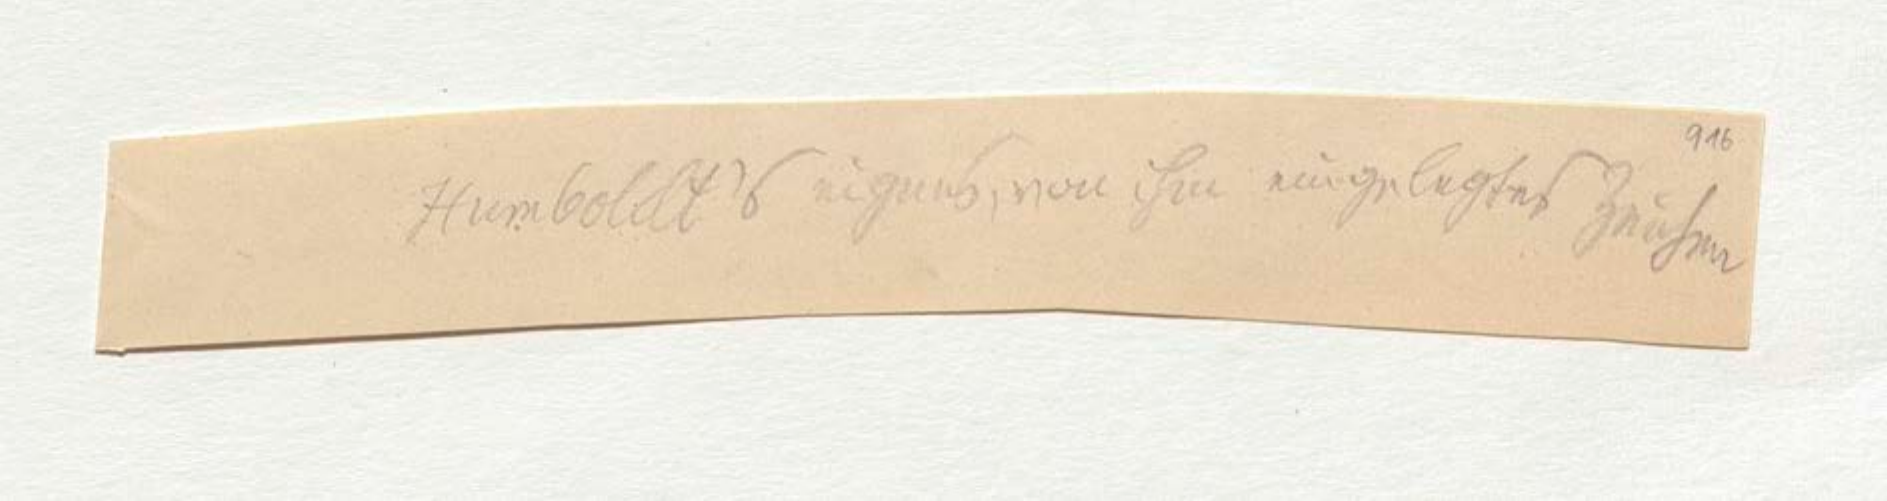 916
Humboldt's eignes, von ihm eingelegtes Zeichen